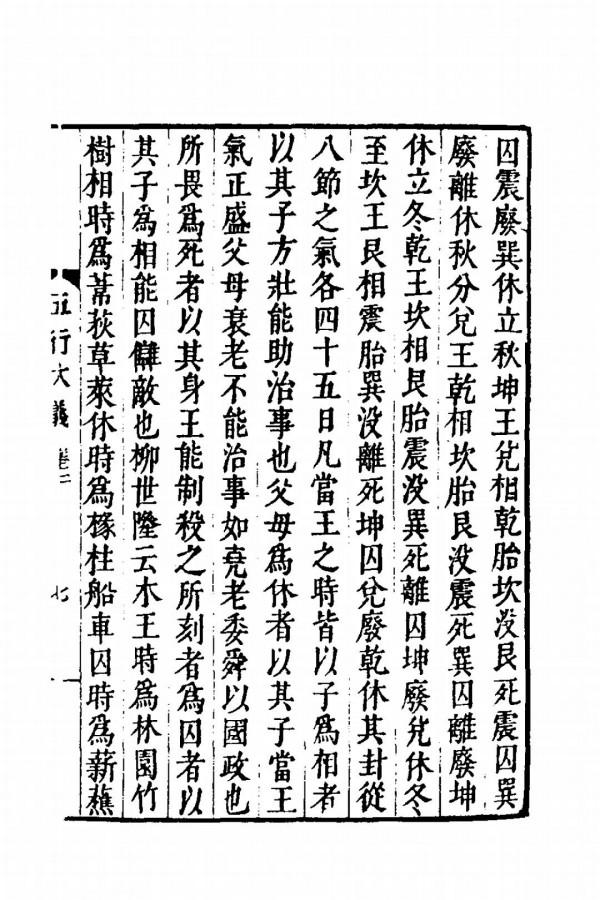 囚震廢巽休立秋坤王兌相乾胎坎没艮死震囚巽
廢離休秋分兌王乾相坎胎艮没震死巽囚離廢坤
休立冬乾王坎相艮胎震没巽死離囚坤廢兌休冬
至坎王艮相震胎巽没離死坤囚兌廢乾休其封從
八節之氣各四十五日凡當王之時皆以子爲相者
以其子方壯能助治事也父母爲休者以其子當王
氣正盛父母衰老不能治事如堯老委舜以國政也
所畏爲死者以其身王能制殺之所刻者爲囚者以
其子爲相能囚讎敵也柳世隆云木王時爲林園竹
樹相時爲蒿荻草萊休時爲椽柱船車囚時爲薪蕉
五行大義 卷二 七